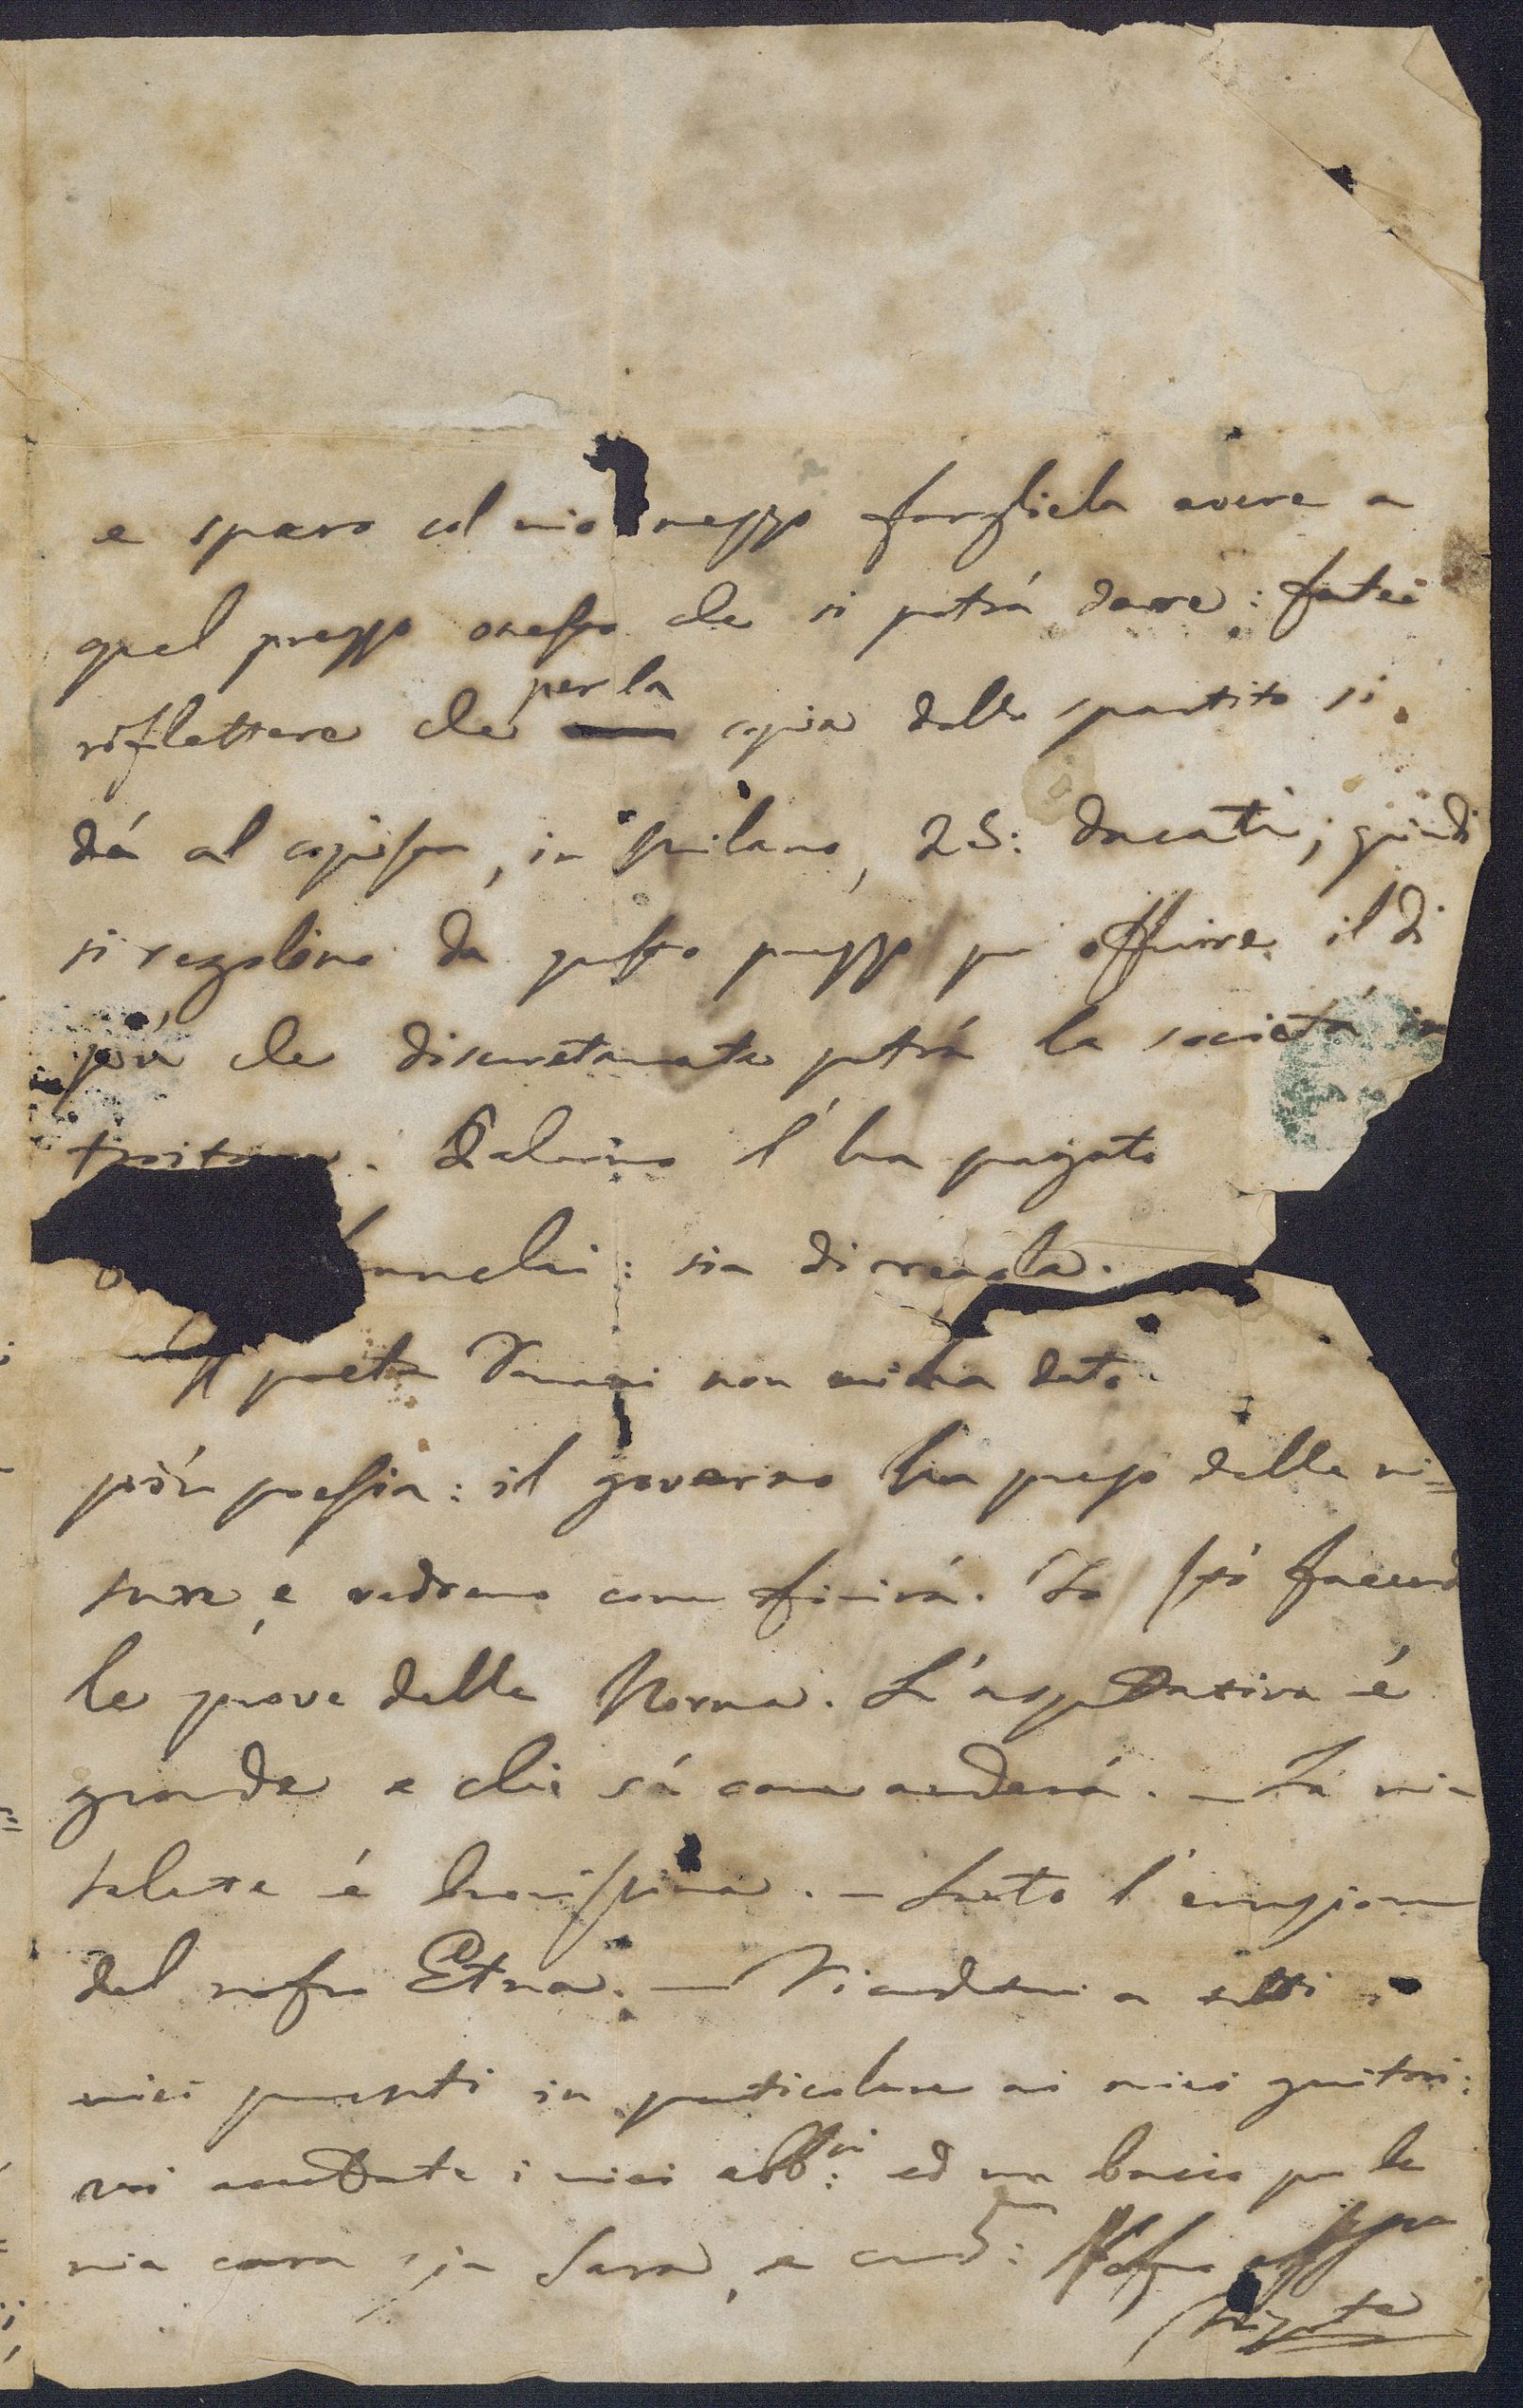 e spero col mio mezzo fargliela avere a
quel prezzo onesto che si potrá dare: fatei
riflettere che per la copia dello spartito si
dá al copista, in Milano, 25: ducati; quindi
si regolino da questo prezzo per offrire il di
piú che discretamente potrá la societá in
. Palermo l'ha pagato
: sia di regola.
Il poeta Romani non mi ha dato
piú poesia: il governo ha preso delle mi=
sure, e vedremo come finirá. Io stó facend
le prove della Norma. L'aspettativa é
grande e chi sá come anderá. — La mia
salute é buonissima. — Sento l'eruzione
del nostro Etna. — Ricordami a tutti i
miei parenti in particolare ai miei genitori:
voi accettate i miei abb:ci ed un bacio per la
mia cara zia Sara, e cred: Vostro aff:mo
Nipote